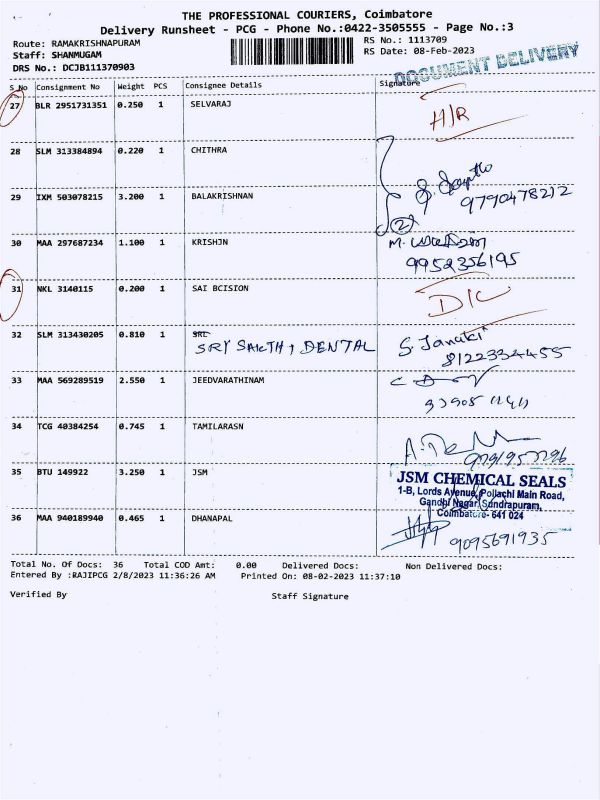 THE PROFESSIONAL COURIERS, Coimbatore
Delivery Runsheet - PCG - Phone No.:0422-3505555 - Page No.:3
Route: RAMAKRISHNAPURAM
RS No.: 1113709
Staff: SHANMUGAM
RS Date: 08-Feb-2023
DRS No.: DCJB111370903
DOCUMENT DELIVERY
S No Consignment No Weight PCS Consignee Details Signature
27 BLR 2951731351 0.250 1 SELVARAJ
H/R
28 SLM 313384894 0.220 1 CHITHRA
29 IXM 503078215 3.200 1 BALAKRISHNAN
9790478212
2
30 MAA 297687234 1.100 1 KRISHJN
9952356195
31 NKL 3140115 0.200 1 SAI BCISION
D/C
32 SLM 313430205 0.810 1 SRI
DENTAL
S. Janaki
8122334455
33 MAA 569289519 2.550 1 JEEDVARATHINAM
34 TCG 40384254 0.745 1 TAMILARASN
35 BTU 149922 3.250 1 JSM
JSM CHEMICAL SEALS
1-B, Lords Avenue, Pollachi Main Road,
Gandhi Nagar, Sundrapuram,
Coimbatore- 641 024
36 MAA 940189940 0.465 1 DHANAPAL
9095691935
Total No. Of Docs: 36 Total COD Amt: 0.00 Delivered Docs: Non Delivered Docs:
Entered By :RAJIPCG 2/8/2023 11:36:26 AM Printed On: 08-02-2023 11:37:10
Verified By Staff Signature